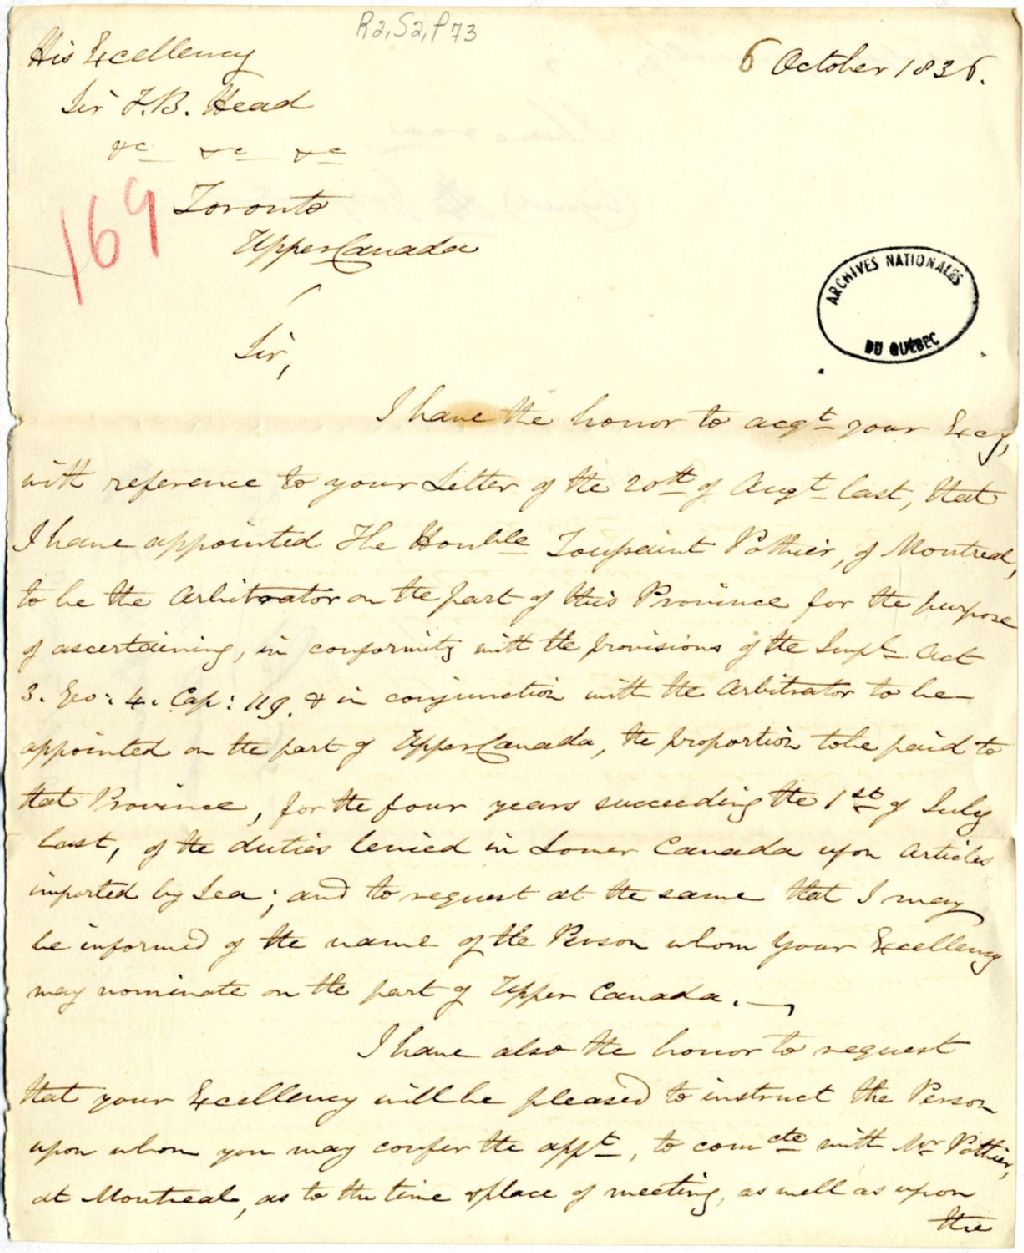 R2, S2, P73
His Excellency
6 October 1836.
Sir F. B. Head
&c &c &c
169
Toronto
Upper Canada
ARCHIVES NATIONALES
DU QUÉBEC
Sir,
I have the honor to acqt your Excy,
with reference to your Letter of the 20th of Augt last, that
I have appointed The Honble Toussaint Pothier, of Montreal,
to be the Arbitrator on the part of this Province for the purpose
of ascertaining, in conformity with the provisions of the Impl Act
3. Geo: 4. Cap: 119. & in conjunction with the Arbitrator to be
appointed on the part of Upper Canada, the proportion to be paid to
that Province, for the four years succeeding the 1st of July
last, of the duties levied in Lower Canada upon Articles
imported by Sea; and to request at the same that I may
be informed of the name of the Person whom Your Excellency
may nominate on the part of Upper Canada.
I have also the honor to request
that your Excellency will be pleased to instruct the Person
upon whom you may confer the appt, to comcte with Mr Pothier,
at Montreal, as to the time & place of meeting, as well as upon
the